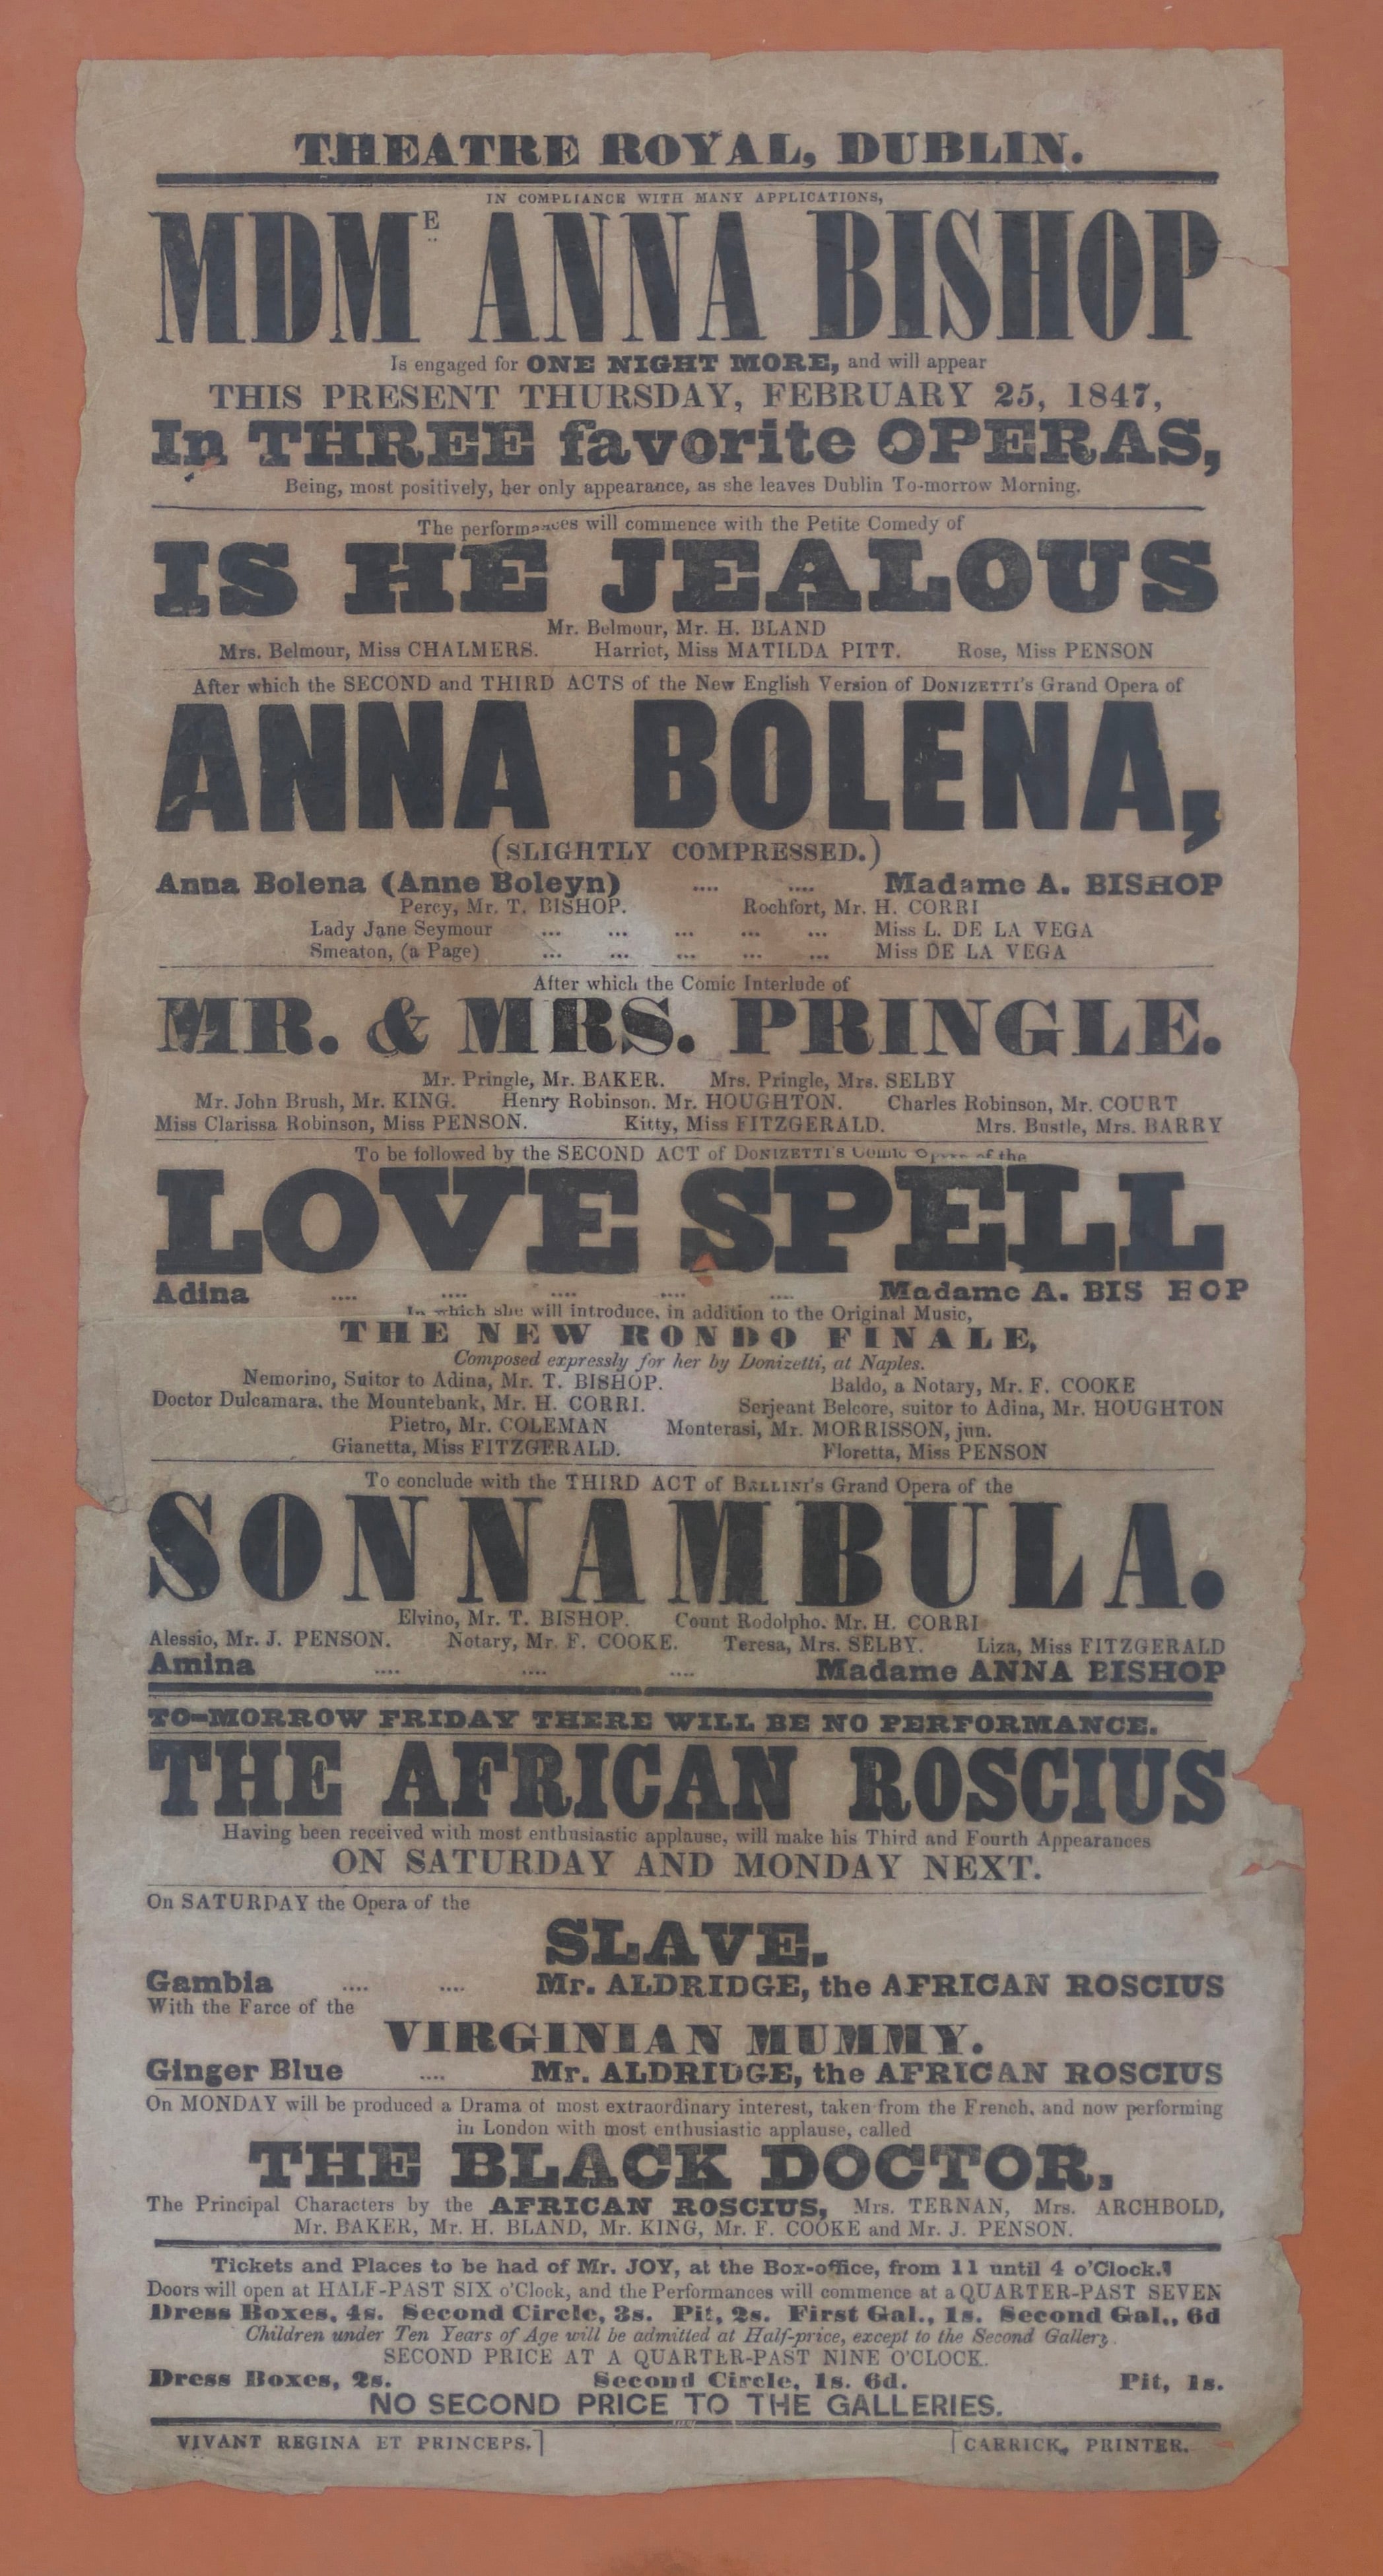 THEATRE ROYAL, DUBLIN.
IN COMPLIANCE WITH MANY APPLICATIONS,
MDME ANNA BISHOP
Is engaged for ONE NIGHT MORE, and will appear
THIS PRESENT THURSDAY, FEBRUARY 25, 1847,
In THREE favorite OPERAS,
Being, most positively, her only appearance, as she leaves Dublin To-morrow Morning.
The performances will commence with the Petite Comedy of
IS HE JEALOUS
Mr. Belmour, Mr. H. BLAND
Mrs. Belmour, Miss CHALMERS. Harriet, Miss MATILDA PITT. Rose, Miss PENSON
After which the SECOND and THIRD ACTS of the New English Version of DONIZETTI'S Grand Opera of
ANNA BOLENA,
(SLIGHTLY COMPRESSED.)
Anna Bolena (Anne Boleyn) .... .... Madame A. BISHOP
Percy, Mr. T. BISHOP. Rochfort, Mr. H. CORRI
Lady Jane Seymour ... ... ... ... ... Miss L. DE LA VEGA
Smeaton, (a Page) ... ... ... ... ... Miss DE LA VEGA
After which the Comic Interlude of
MR. & MRS. PRINGLE.
Mr. Pringle, Mr. BAKER. Mrs. Pringle, Mrs. SELBY
Mr. John Brush, Mr. KING. Henry Robinson. Mr. HOUGHTON. Charles Robinson, Mr. COURT
Miss Clarissa Robinson, Miss PENSON. Kitty, Miss FITZGERALD. Mrs. Bustle, Mrs. BARRY
To be followed by the SECOND ACT of DONIZETTI'S Comic Opera of the
LOVE SPELL
Adina .... .... .... .... .... Madame A. BIS HOP
In which she will introduce, in addition to the Original Music,
THE NEW RONDO FINALE,
Composed expressly for her by Donizetti, at Naples.
Nemorino, Suitor to Adina, Mr. T. BISHOP. Baldo, a Notary, Mr. F. COOKE
Doctor Dulcamara. the Mountebank, Mr. H. CORRI. Serjeant Belcore, suitor to Adina, Mr. HOUGHTON
Pietro, Mr. COLEMAN Monterasi, Mr. MORRISSON, jun.
Gianetta, Miss FITZGERALD. Floretta, Miss PENSON
To conclude with the THIRD ACT of BALLINI'S Grand Opera of the
SONNAMBULA.
Elvino, Mr. T. BISHOP. Count Rodolpho. Mr. H. CORRI
Alessio, Mr. J. PENSON. Notary, Mr. F. COOKE. Teresa, Mrs. SELBY. Liza, Miss FITZGERALD
Amina .... .... .... Madame ANNA BISHOP
TO-MORROW FRIDAY THERE WILL BE NO PERFORMANCE.
THE AFRICAN ROSCIUS
Having been received with most enthusiastic applause, will make his Third and Fourth Appearances
ON SATURDAY AND MONDAY NEXT.
On SATURDAY the Opera of the
SLAVE.
Gambia .... .... Mr. ALDRIDGE, the AFRICAN ROSCIUS
With the Farce of the
VIRGINIAN MUMMY.
Ginger Blue .... Mr. ALDRIDGE, the AFRICAN ROSCIUS
On MONDAY will be produced a Drama of most extraordinary interest, taken from the French, and now performing
in London with most enthusiastic applause, called
THE BLACK DOCTOR,
The Principal Characters by the AFRICAN ROSCIUS, Mrs. TERNAN, Mrs. ARCHBOLD,
Mr. BAKER, Mr. H. BLAND, Mr. KING, Mr. F. COOKE and Mr. J. PENSON.
Tickets and Places to be had of Mr. JOY, at the Box-office, from 11 until 4 o'Clock.
Doors will open at HALF-PAST SIX o'Clock, and the Performances will commence at a QUARTER-PAST SEVEN
Dress Boxes, 4s. Second Circle, 3s. Pit, 2s. First Gal., 1s. Second Gal., 6d
Children under Ten Years of Age will be admitted at Half-price, except to the Second Gallery.
SECOND PRICE AT A QUARTER-PAST NINE O'CLOCK.
Dress Boxes, 2s. Second Circle, 1s. 6d. Pit, 1s.
NO SECOND PRICE TO THE GALLERIES.
VIVANT REGINA ET PRINCEPS.] [CARRICK, PRINTER.